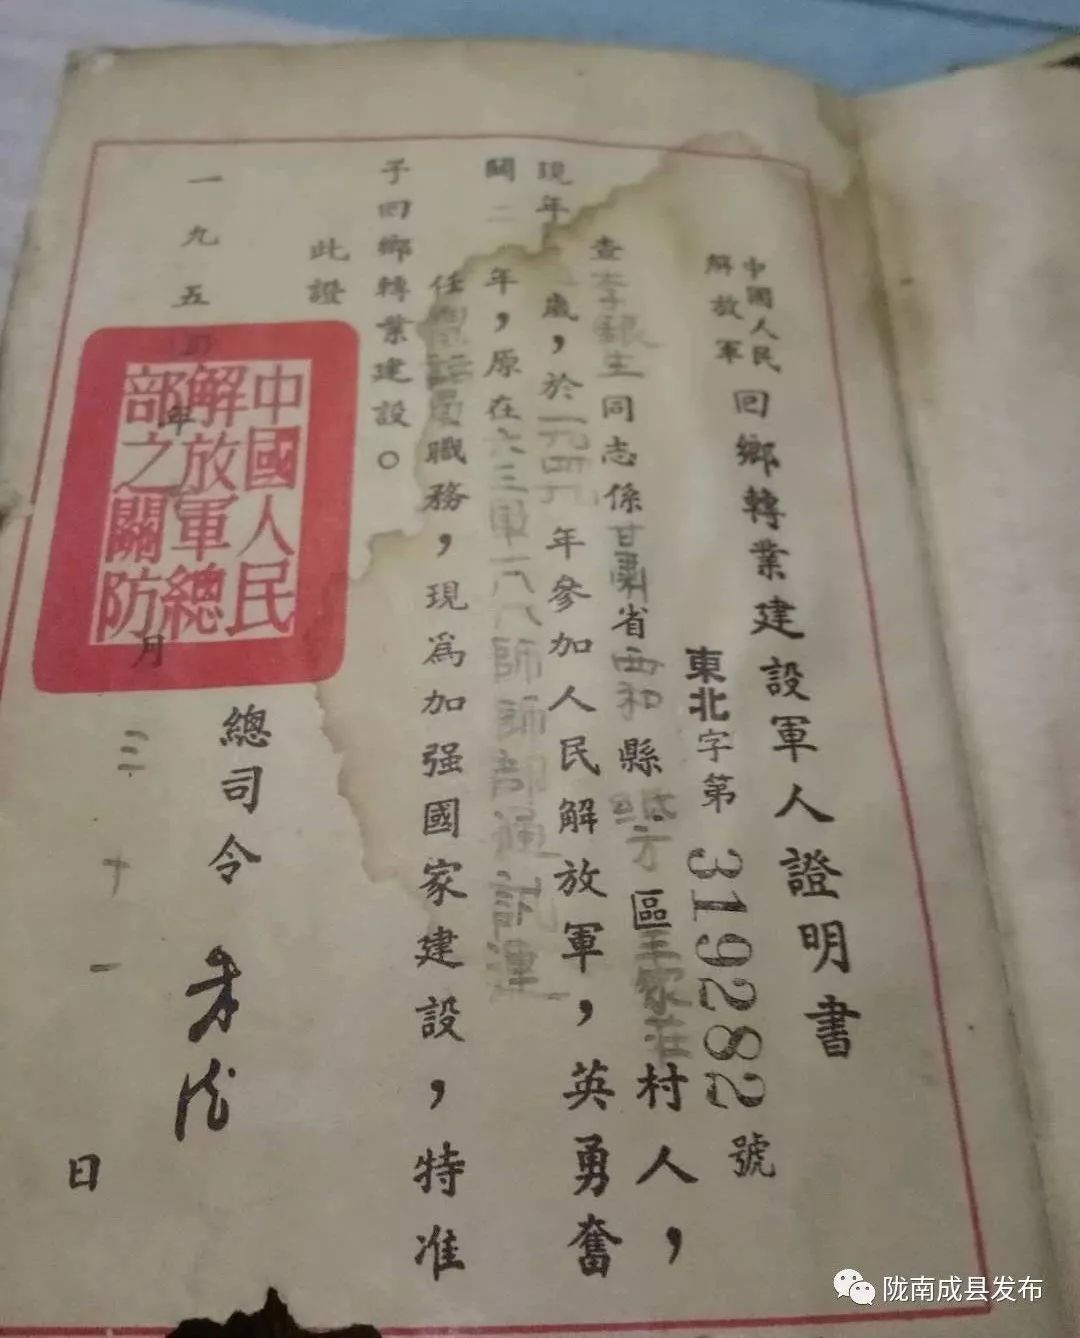 中國人民
解放軍
回鄉轉業建設軍人證明書
東北字第319282號
查李銀生同志係甘肅省西和縣紙方區王家莊村人，
現年 歲，於一九四九年參加人民解放軍，英勇奮
鬪二 年，原在六三軍一八八師師部通訊連
任電話員職務，現爲加强國家建設，特准
子回鄉轉業建設。
此證
總司令 朱德
中國人民
解放軍總
部之關防
一九五 年 月三十一日
陇南成县发布